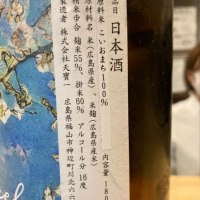 品目 日本酒
原料米 こいおまち100%
原材料名 米(広島県産)、米麹(広島県産米)
精米歩合 麹米55%、掛米60% アルコール分 16度
製造者 株式会社天寶一
広島県福山市神辺町川北六六
内容量 180